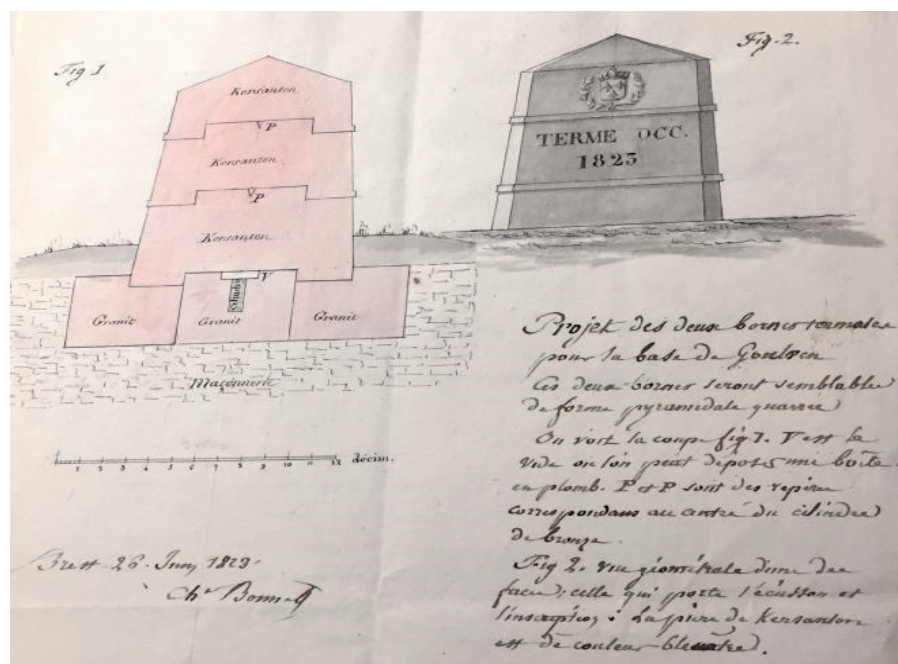 Fig 1
Fig. 2.
Kersanton
P
Kersanton
P
Kersanton
V
Cilindre
Granit
Granit
Granit
Maçonnerie
TERME OCC.
1823
1 2 3 4 5 6 7 8 9 10 11 12 décim.
Projet des deux bornes termales
pour la base de Goulven
Ces deux bornes seront semblable
de forme pyramidale quarree
On voit la coupe fig 1. V est la
vide ou l'on peut déposer une boîte
en plomb. P et P sont des repère
correspondans au centre du cilindre
de bronze.
Fig 2. vue géométrale d'une des
faces; celle qui porte l'écusson et
l'inscription: La pierre de Kersanton
est de couleur bleuatre.
Brest 26. Juin 1823.
Ch Bonnet